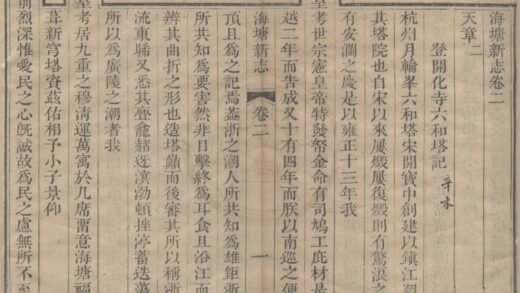 海塘新志卷二
天章二
登開化寺六和塔記 辛未
杭州月輪峯六和塔宋開寶中創建以鎮江潮
其塔院也自宋以來屢燬屢復燬則有驚浪之
有安瀾之慶是以雍正十三年我
皇考世宗憲皇帝特發帑金命有司鳩工庀材是
越二年而告成又十有四年而朕以南巡之便
海塘新志 卷二 一
頂且為之記焉葢浙之潮人所共知為雄鉅浙
所共知為要害然非目擊終為耳食且沿江而
辨其曲折之形也造塔巔而後審其所以稱浙
流東睇又悉其亹龕赭逕滇渤頓挫渟蓄迭蕩
所以為廣陵之潮者我
皇考居九重之穆清運萬寓於几席畱意海塘福
葺新穹塔資兹佑相予小子景仰
前烈深惟愛民之心旣誠故為民之慮無所不至